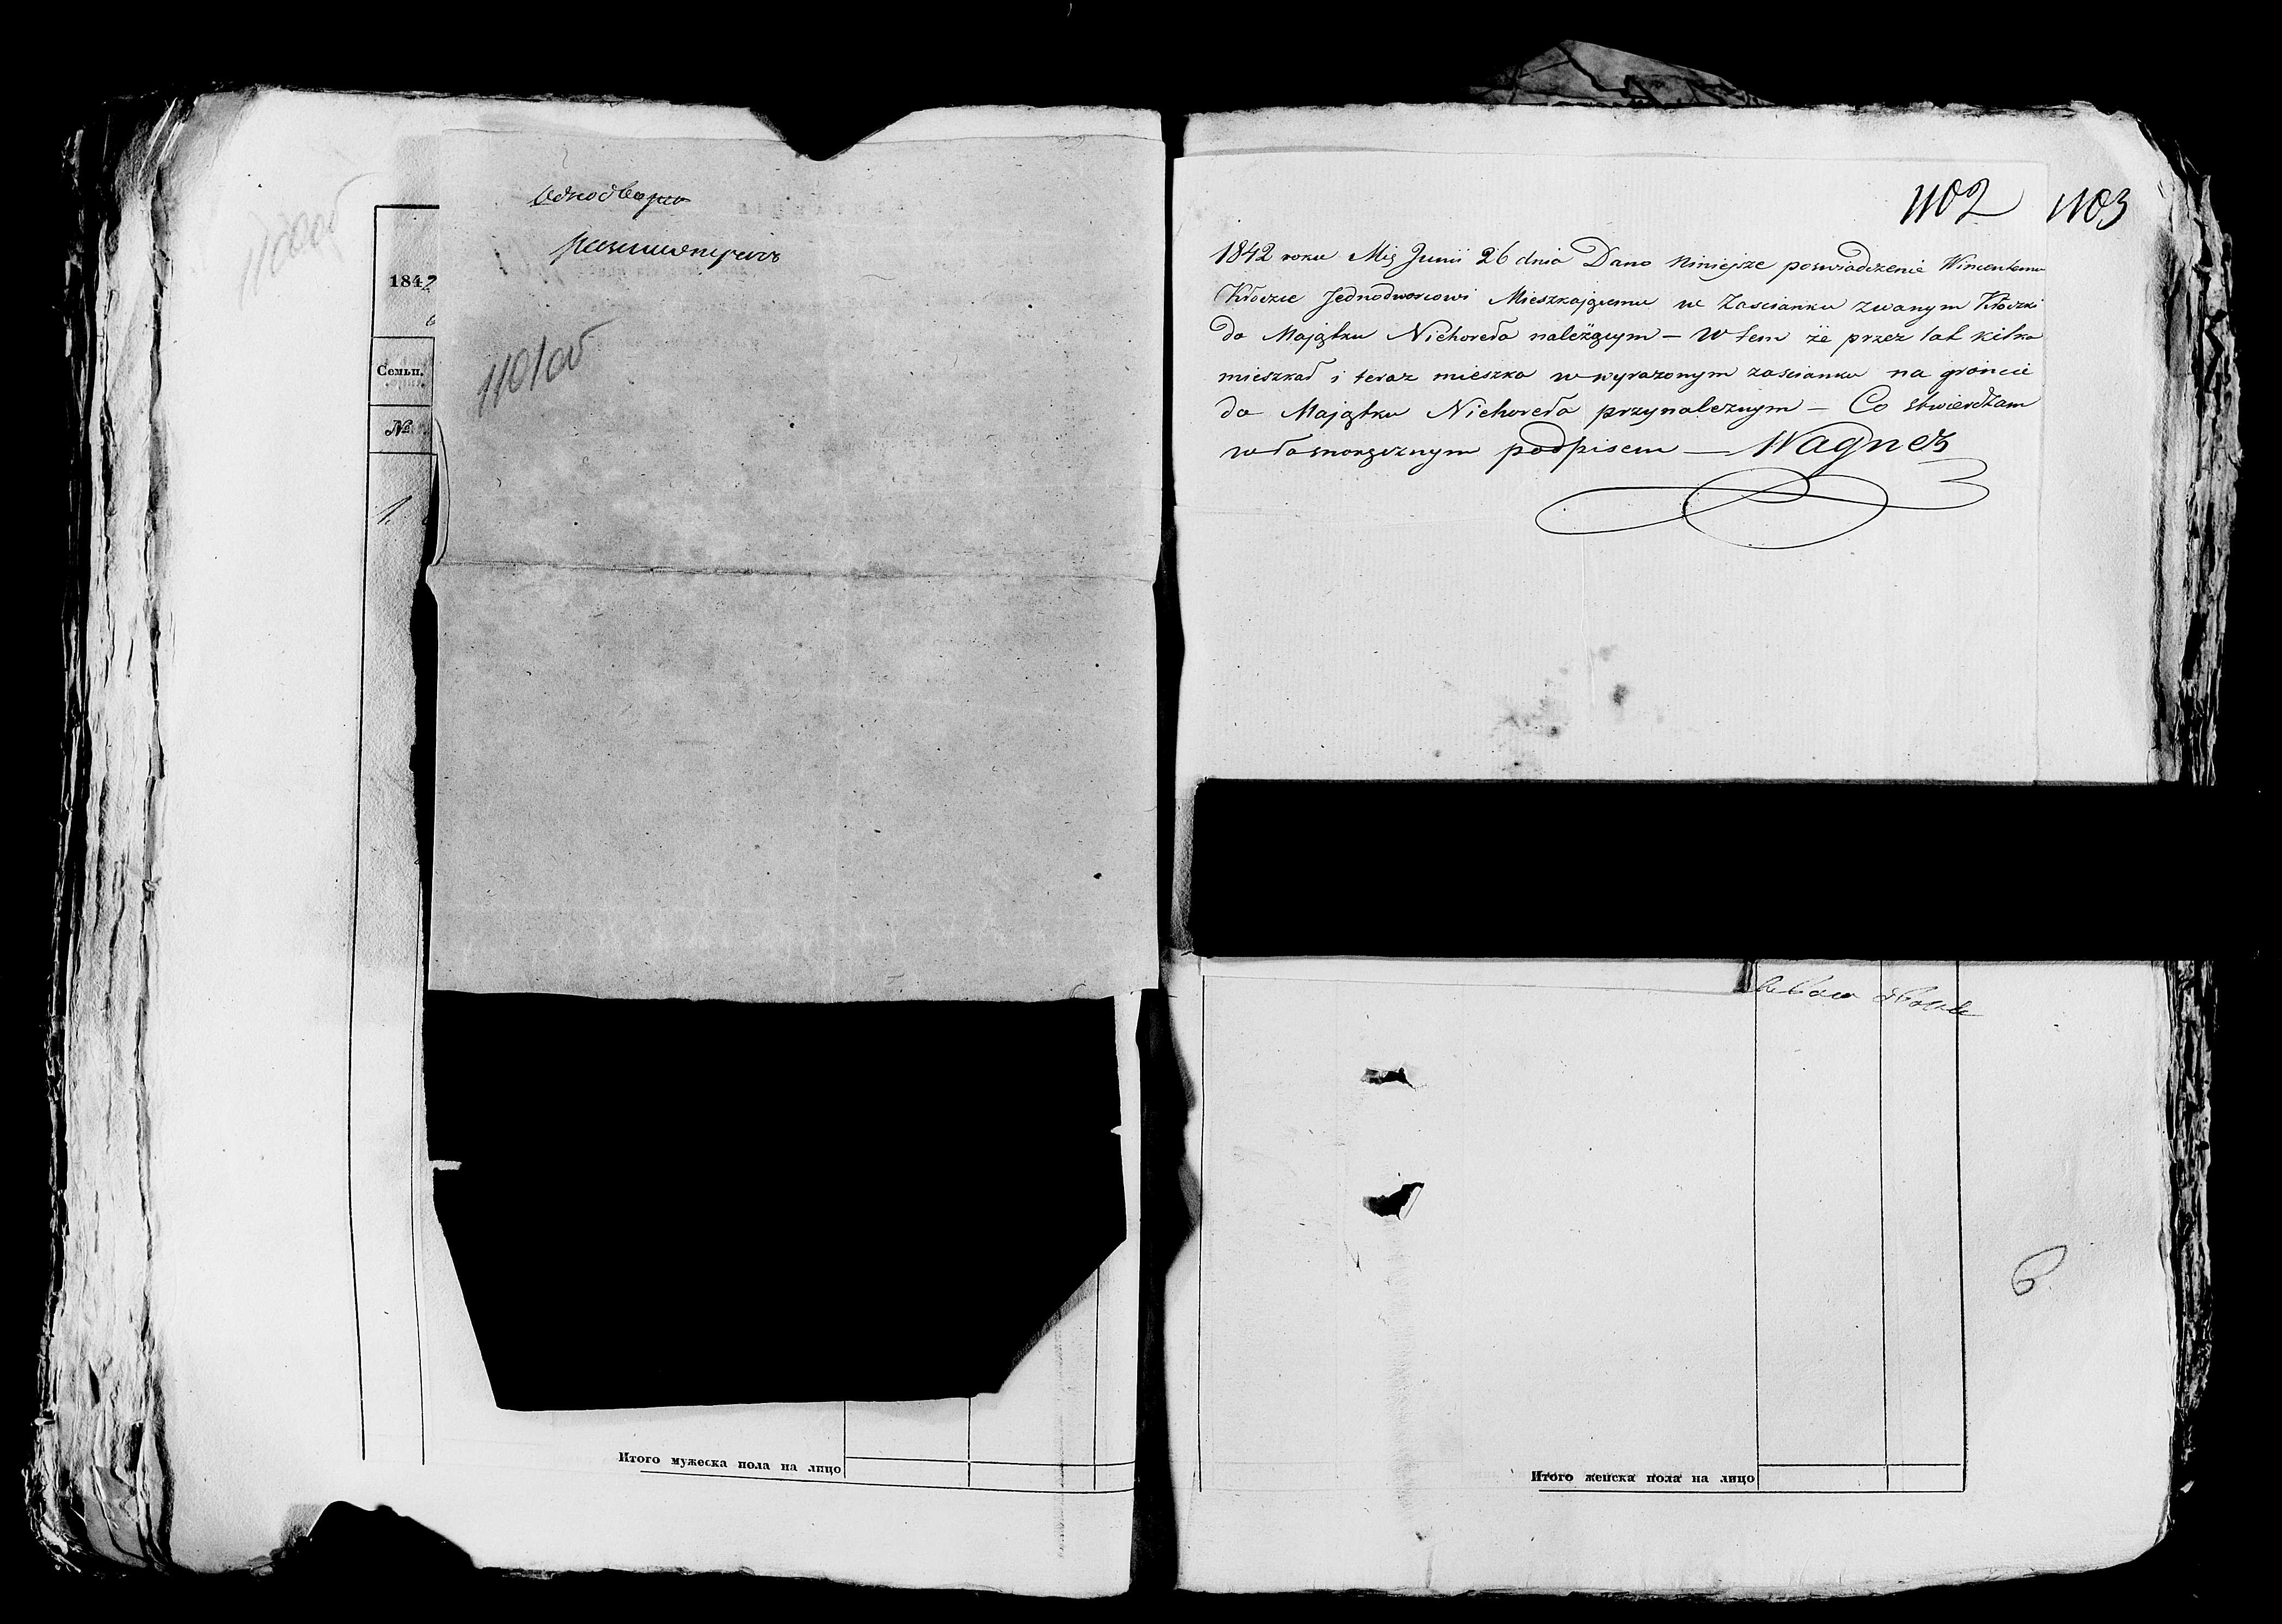 1101об
1842
Семьи.
№
1.
Итого мужеска пола на лицо
1102 1103
1842 roku Mię Junii 26 dnia Dano Niniejsze poswiadczenie Wincentemu
Kłoczce Jednodworcowi Mieszkającemu we Zascianku zwanym Kłoczki
do Majątku Nichoreła należącym — W tem że przez lat kilka
mieszkał i teraz mieszka w wyrazonym zascianku na gróncie
do Majątku Nichoreła przynaleznym — Co stwierdzam
własnoręcznym podpisem — Wagner
6.
Итого женска пола на лицо